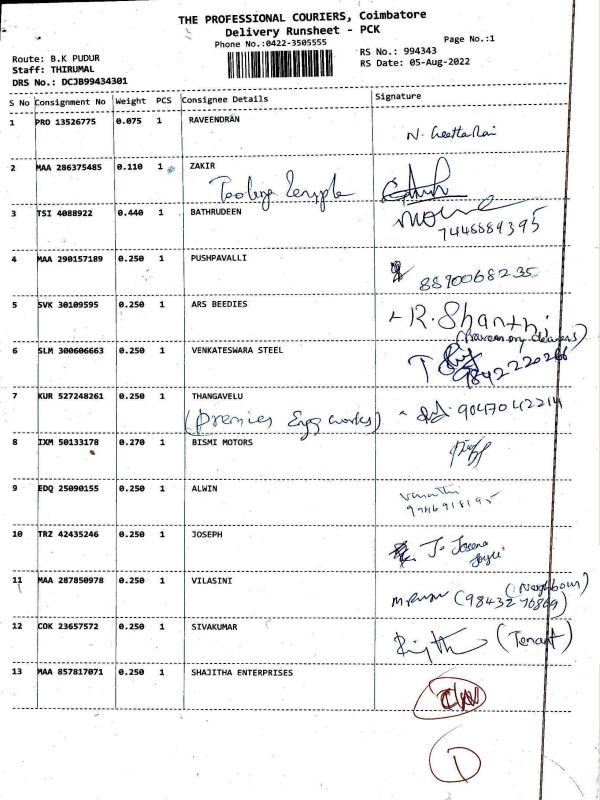 THE PROFESSIONAL COURIERS, Coimbatore
Delivery Runsheet - PCK
Phone No.:0422-3505555
Page No.:1
Route: B.K PUDUR
RS No.: 994343
Staff: THIRUMAL
RS Date: 05-Aug-2022
DRS No.: DCJB99434301
S No Consignment No Weight PCS Consignee Details Signature
1 PRO 13526775 0.075 1 RAVEENDRAN
2 MAA 286375485 0.110 1 ZAKIR
3 TSI 4088922 0.440 1 BATHRUDEEN
7446889395
4 MAA 290157189 0.250 1 PUSHPAVALLI
8870068235
5 SVK 30109595 0.250 1 ARS BEEDIES
R. Shanthi
6 SLM 300606663 0.250 1 VENKATESWARA STEEL
9842220266
7 KUR 527248261 0.250 1 THANGAVELU
(Premier Engg works) 9047042214
8 IXM 50133178 0.270 1 BISMI MOTORS
9 EDQ 25090155 0.250 1 ALWIN
10 TRZ 42435246 0.250 1 JOSEPH
11 MAA 287850978 0.250 1 VILASINI
(Neighbour)
(9843270869)
12 COK 23657572 0.250 1 SIVAKUMAR
(Tenant)
13 MAA 857817071 0.250 1 SHAJITHA ENTERPRISES
1